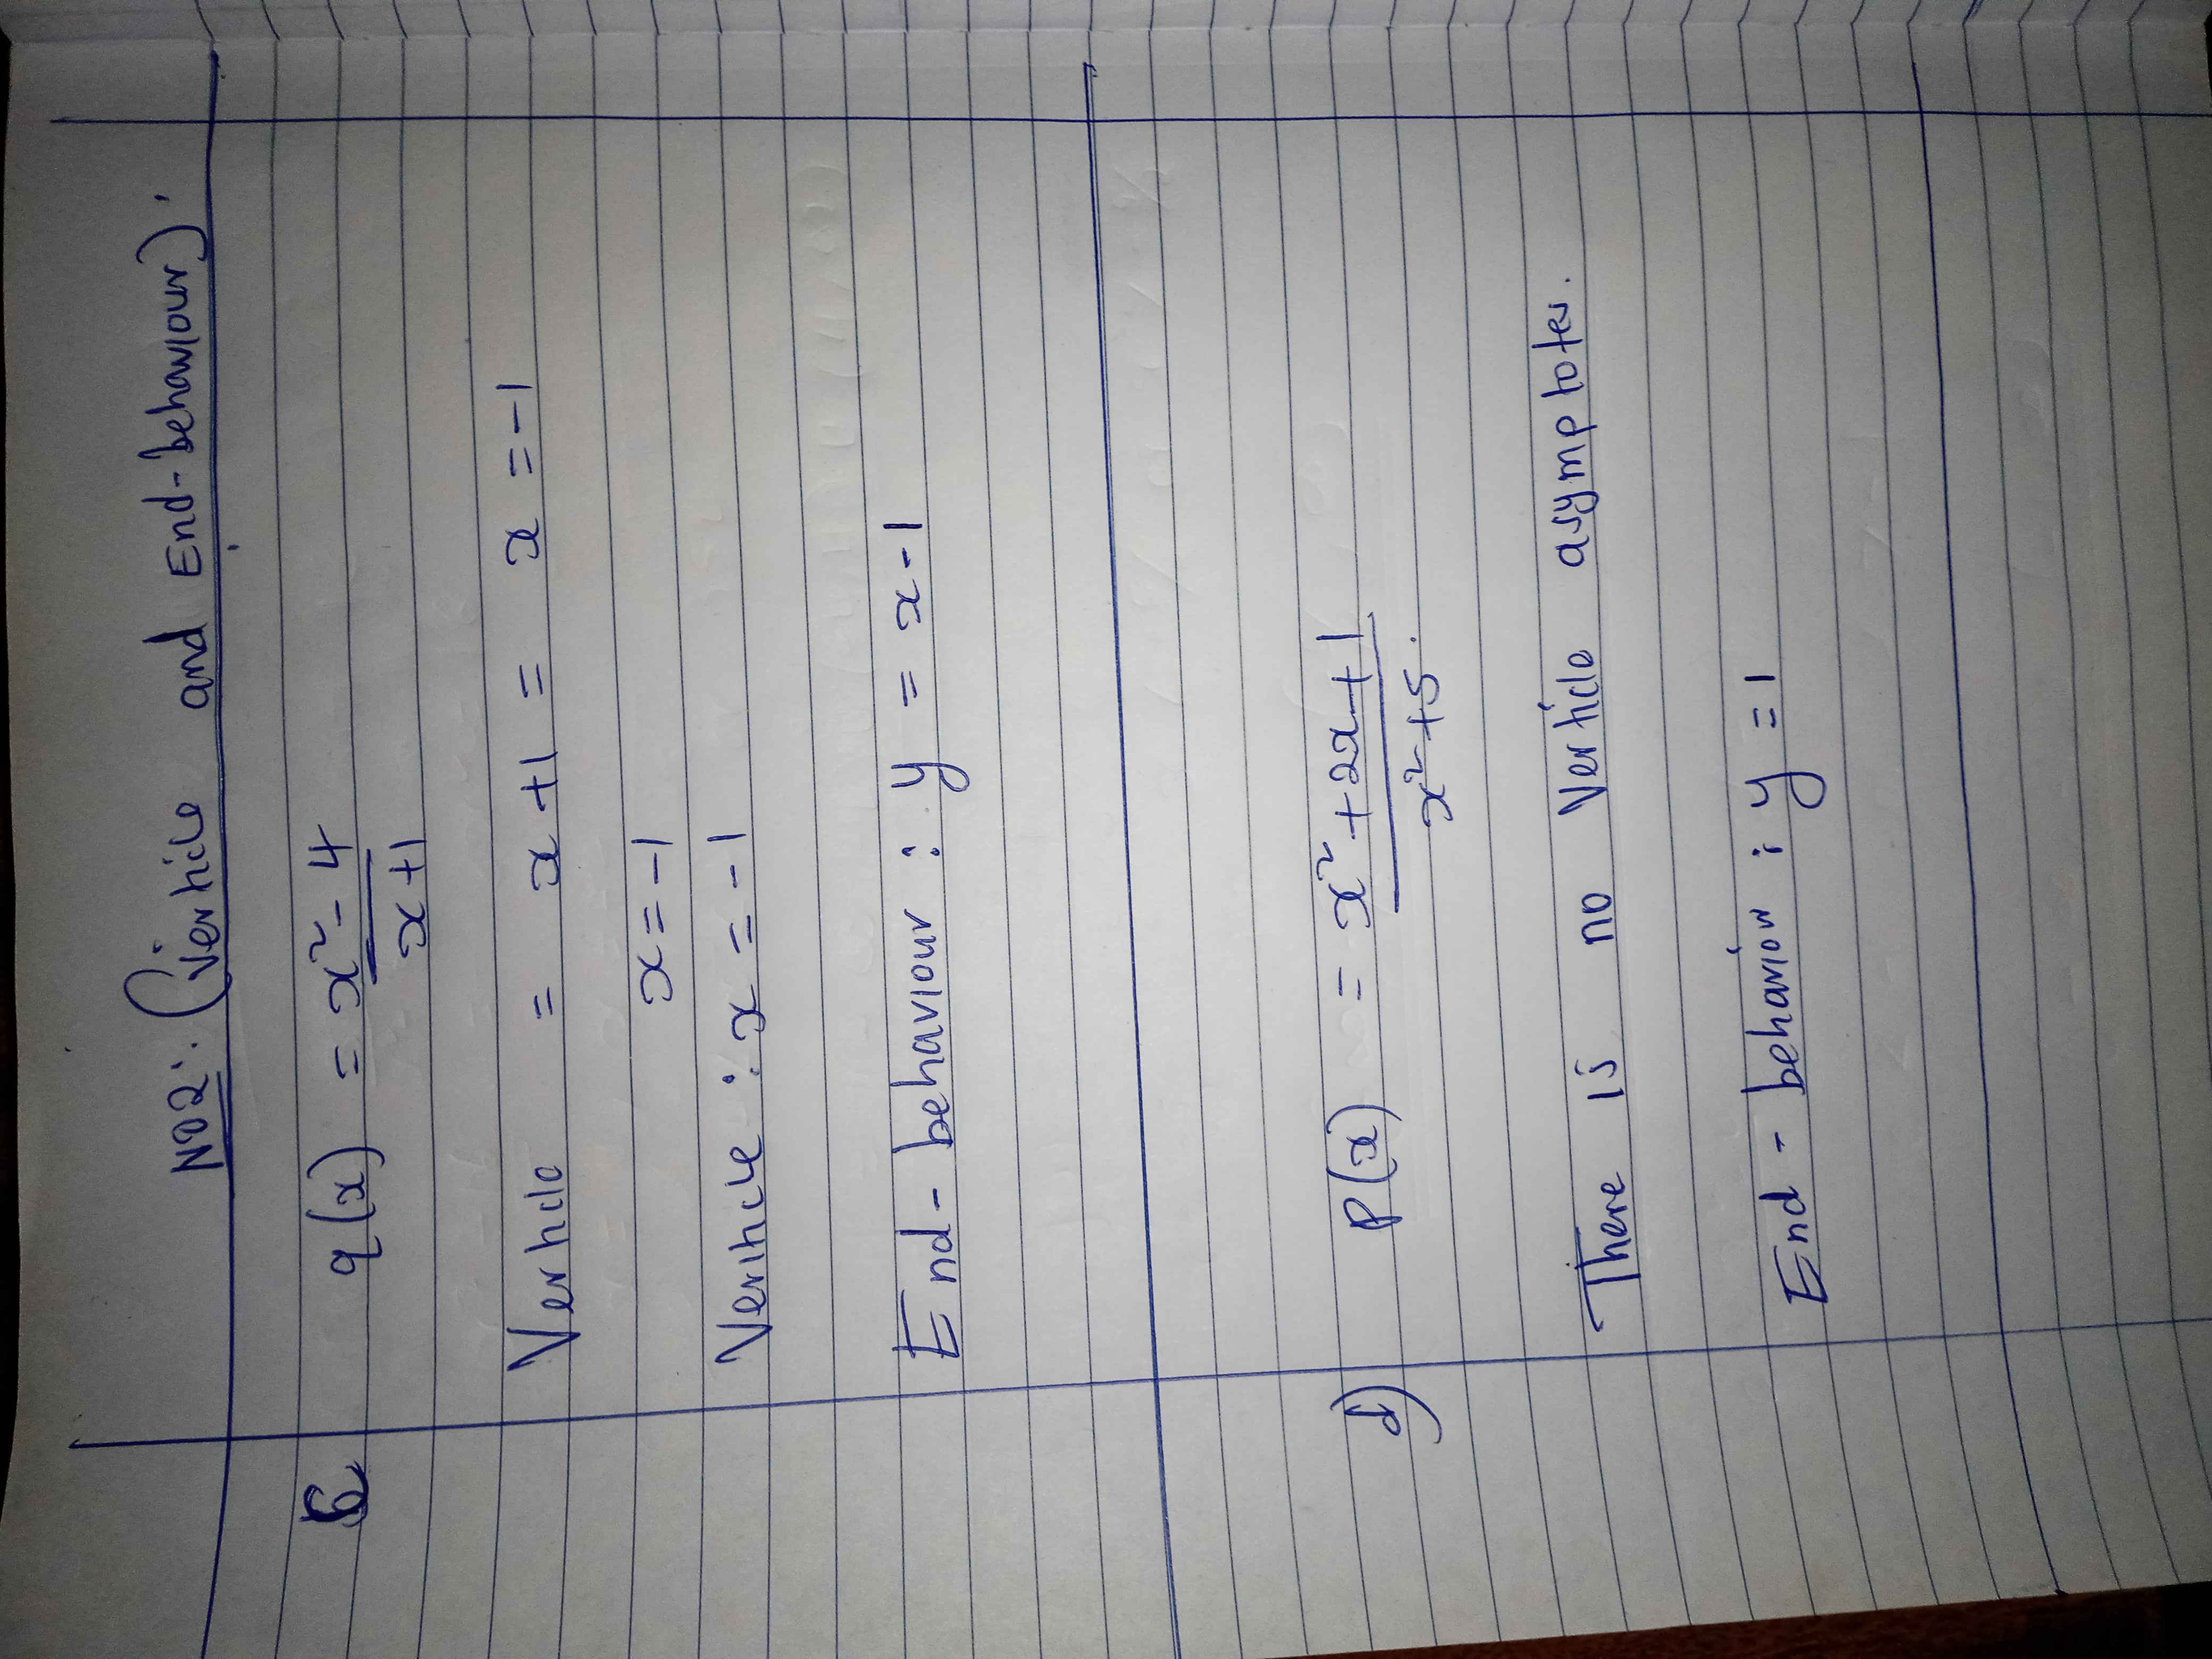 NO2: (Verticle and End-behaviour).
q(x) = x² - 4
x + 1
Verticle = x + 1 = x = -1
x = -1
Verticle : x = -1
End - behaviour : y = x - 1
d) P(x) = x² + 2x + 1
x² + 5.
There is no Verticle asymptotes.
End - behaviour : y = 1